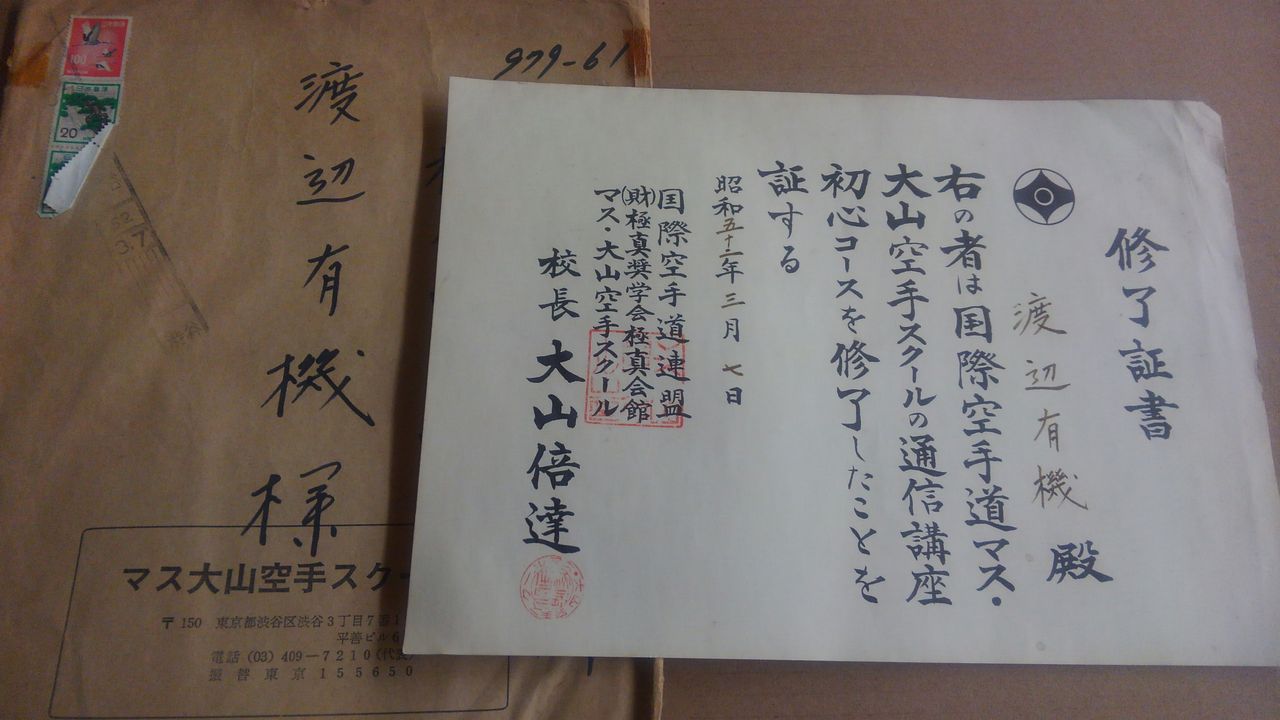 修了証書
渡辺有機殿
右の者は国際空手道マス・
大山空手スクールの通信講座
初心コースを修了したことを
証する
昭和五十二年三月七日
国際空手道連盟
(財)極真奨学会極真会館
マス・大山空手スクール
校長 大山倍達
979-61
渡辺有機様
100
20
マス大山空手スク
〒150 東京都渋谷区渋谷3丁目7番1
平善ビル6
電話(03)409-7210(代表
振替東京155650